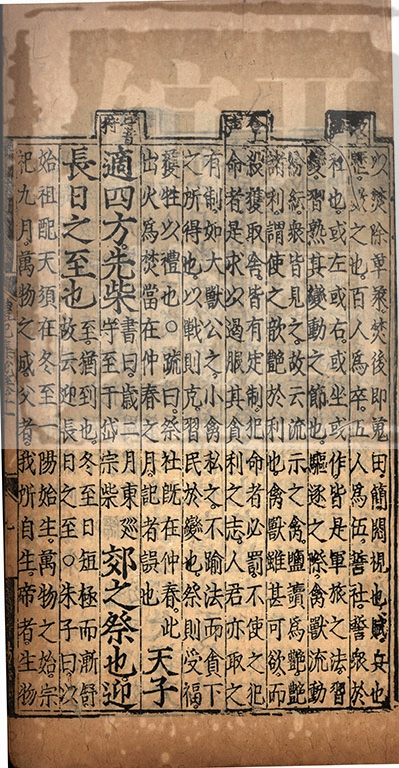 以焚除草萊焚後即蒐田簡閱視也賦兵也
之也百人爲卒五人爲伍誓社誓衆於
社也或左或右或坐或作皆是軍旅之法習
變習熟其變動之節也驅逐之際禽獸流動
紛紜衆皆見之故云流示之禽鹽讀爲艷艷
諸利謂使之歆艷於利也禽獸雖甚可欲而
殺獲取舍皆有定制犯命者必罰不使之犯
命者是求以過服其貪利之志人君亦取之
有制如大獸公之小禽私之不踰法而貪下
之所得也以戰則克習民於變也祭則受福
獲牲以禮也○疏曰祭社旣在仲春此
出火爲焚當在仲春之月記者誤也
天子
適四方先柴
書曰歲二月東巡
守至于岱宗柴
郊之祭也迎
長日之至也
至猶到也冬至日短極而漸舒
故云迎長日之至○朱子曰以
始祖配天須在冬至一陽始生萬物之始宗
祀九月萬物之成父者我所自生帝者生物